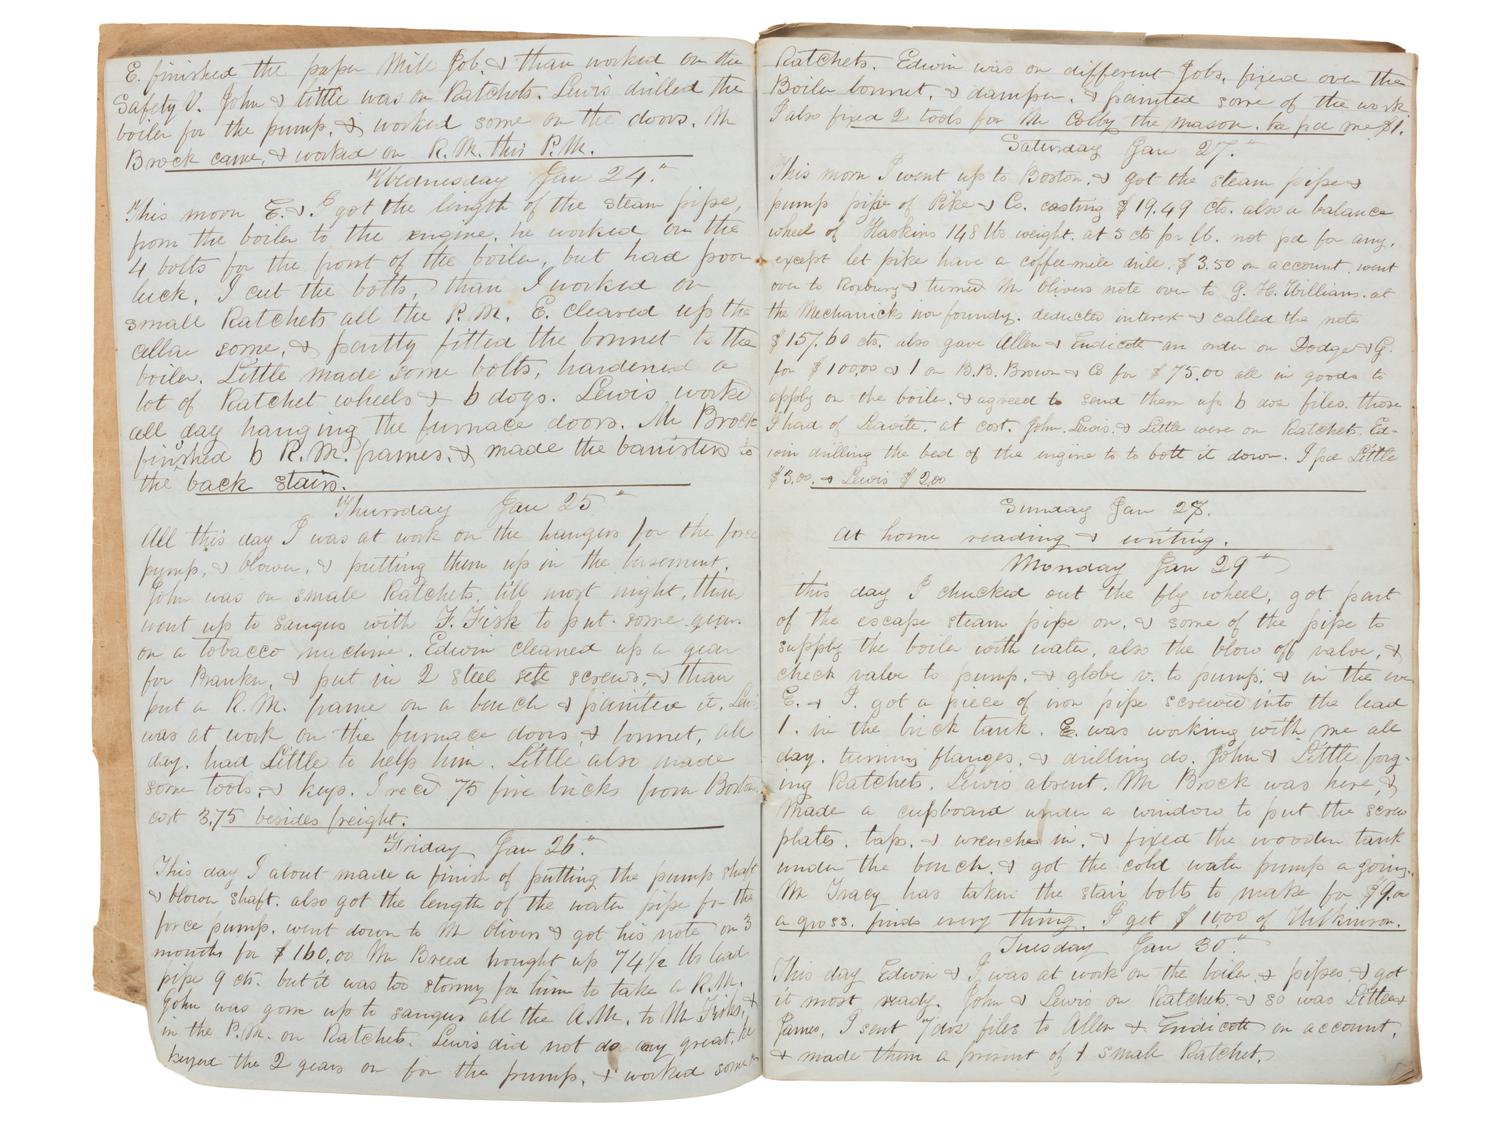 E. finished the paper Mill Job. & than worked on the
Safety V. John & little was on Ratchets. Lewis drilled the
boiler for the pump, & worked some on the doors. Mr
Brock came, & worked on R.M. this P.M.
Wednesday Jan 24.th
This morn E. & I got the length of the steam pipe,
from the boiler to the engine, he worked on the
4 bolts for the front of the boiler, but had poor
luck, I cut the bolts, than I worked on
small Ratchets all the P.M. E. cleared up the
cellar some, & partly fitted the bonnet to the
boiler. Little made some bolts, hardened a
lot of Ratchet wheels & 6 dogs. Lewis worked
all day hanging the furnace doors. Mr Brock
finished 6 R.M. frames, & made the banisters to
the back stairs.
Thursday Jan 25th
All this day I was at work on the hangers for the force
pump, & blower, & putting them up in the basement.
John was on small Ratchets, till most night, than
went up to Saugus with F. Fisk to put some gears
on a tobacco machine. Edwin cleaned up a gear
for , & put in 2 steel sett screws, & than
put a R.M. frame on a bench & painted it. Lewis
was at work on the furnace doors, & bonnet, all
day. had Little to help him. Little also made
some tools, & keys. I recd 75 fire bricks from Boston.
cost 3,75 besides freight.
Friday Jan 26.th
This day I about made a finish of putting the pump shaft
& blower shaft. also got the length of the water pipe for the
force pump. went down to Mr Olivers & got his note on 3
months for $160,00 Mr Breed bought up 74 1/2 lbs lead
pipe 9 cts. but it was too stormy for him to take a R.M.
John was gone up to Saugus all the A.M. to Mr Fisks, &
in the P.M. on Ratchets. Lewis did not do any great, he
keyed the 2 gears on for the pump, & worked some on
Ratchets. Edwin was on different Jobs, fixed over the
Boiler bonnet, & damper, & painted some of the work
I also fixed 2 tools for Mr Colby the mason. he pd me $1.
Saturday Jan 27.th
This morn I went up to Boston, & got the steam pipe &
pump pipe of Pike & Co. costing $19.49 cts. also a balance
wheel of Haskins 148 lbs weight. at 5 cts per lb. not pd for any,
except let pike have a coffee mill drill. $3.50 on account. went
over to Roxbury & turned Mr Olivers note over to G. H. Williams. at
the Mechanicks iron foundry. deducted interest & called the note
$157.60 cts. also gave Allen & Endicott an order on Dodge & G.
for $100,00 & 1 on B.B. Brown & Co for $75.00 all in goods to
apply on the boiler. & agreed to send them up 6 doz files. those
I had of Leavitt. at cost. John, Lewis, & Little were on Ratchets. Ed-
win drilling the bed of the engine to to bolt it down. I pd Little
$3.00. & Lewis $2,00
Sunday Jan 28.
At home reading & writing.
Monday Jan 29th
this day I chucked out the fly wheel, got part
of the escape steam pipe on, & some of the pipe to
supply the boiler with water, also the blow off valve, &
check valve to pump, & globe v. to pump, & in the eve
E. & I. got a piece of iron pipe screwed into the lead
1. in the brick tank. E. was working with me all
day. turning flanges, & drilling do. John & Little forg-
ing Ratchets. Lewis absent. Mr Brock was here, &
Made a cupboard under a window to put the screw
plates, taps, & wrenches in, & fixed the wooden tank
under the bench, & got the cold water pump a going.
Mr Tracy has taken the stair bolts to make for $9.00
a gross. finds every thing. I get $10.00 of Wilkinson.
Tuesday Jan 30th
This day Edwin & I, was at work on the boiler & pipes, & got
it most ready. John & Lewis on Ratchets. & so was Little &
James, I sent 7 doz files to Allen & Endicott on account,
& made them a present of 1 small Ratchet,